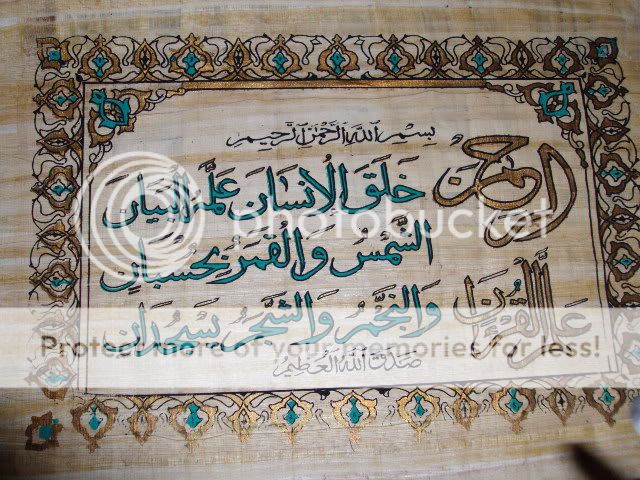 بِسْمِ اللهِ الرَّحْمٰنِ الرَّحِيمِ
الرحمن
عَلَّمَ الْقُرْآنَ
خَلَقَ الْإِنْسَانَ عَلَّمَهُ الْبَيَانَ
الشَّمْسُ وَالْقَمَرُ بِحُسْبَانٍ
وَالنَّجْمُ وَالشَّجَرُ يَسْجُدَانِ
صدق الله العظيم
photobucket
Protect more of your memories for less!